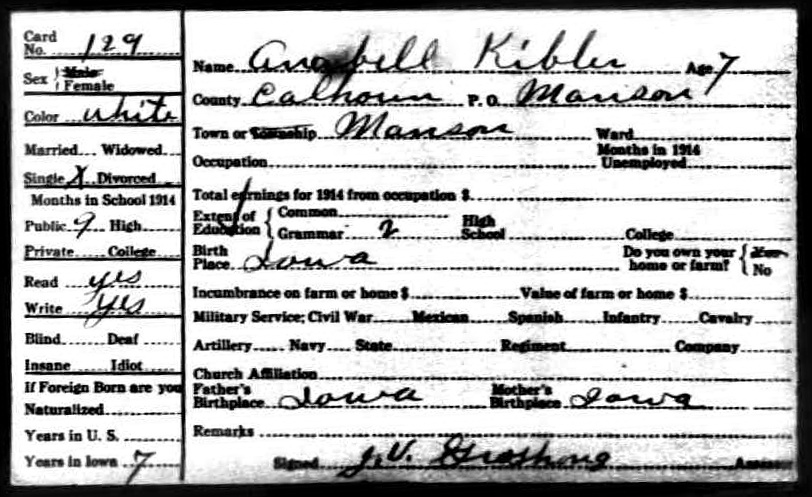 Card No. 129
Sex { Male Female
Color White
Married Widowed
Single X Divorced
Months in School 1914
Public 9 High
Private College
Read yes
Write yes
Blind Deaf
Insane Idiot
If Foreign Born are you
Naturalized
Years in U. S.
Years in Iowa 7
Name Anabell Kibler Age 7
County Calhoun P. O. Manson
Town or Township Manson Ward
Occupation Months in 1914 Unemployed
Total earnings for 1914 from occupation $
Extent of Education { Common
Grammar 2 High School College
Birth Place Iowa Do you own your home or farm? { Yes No
Incumbrance on farm or home $ Value of farm or home $
Military Service; Civil War Mexican Spanish Infantry Cavalry
Artillery Navy State Regiment Company
Church Affiliation
Father's Birthplace Iowa Mother's Birthplace Iowa
Remarks
Signed J. V. Assessor